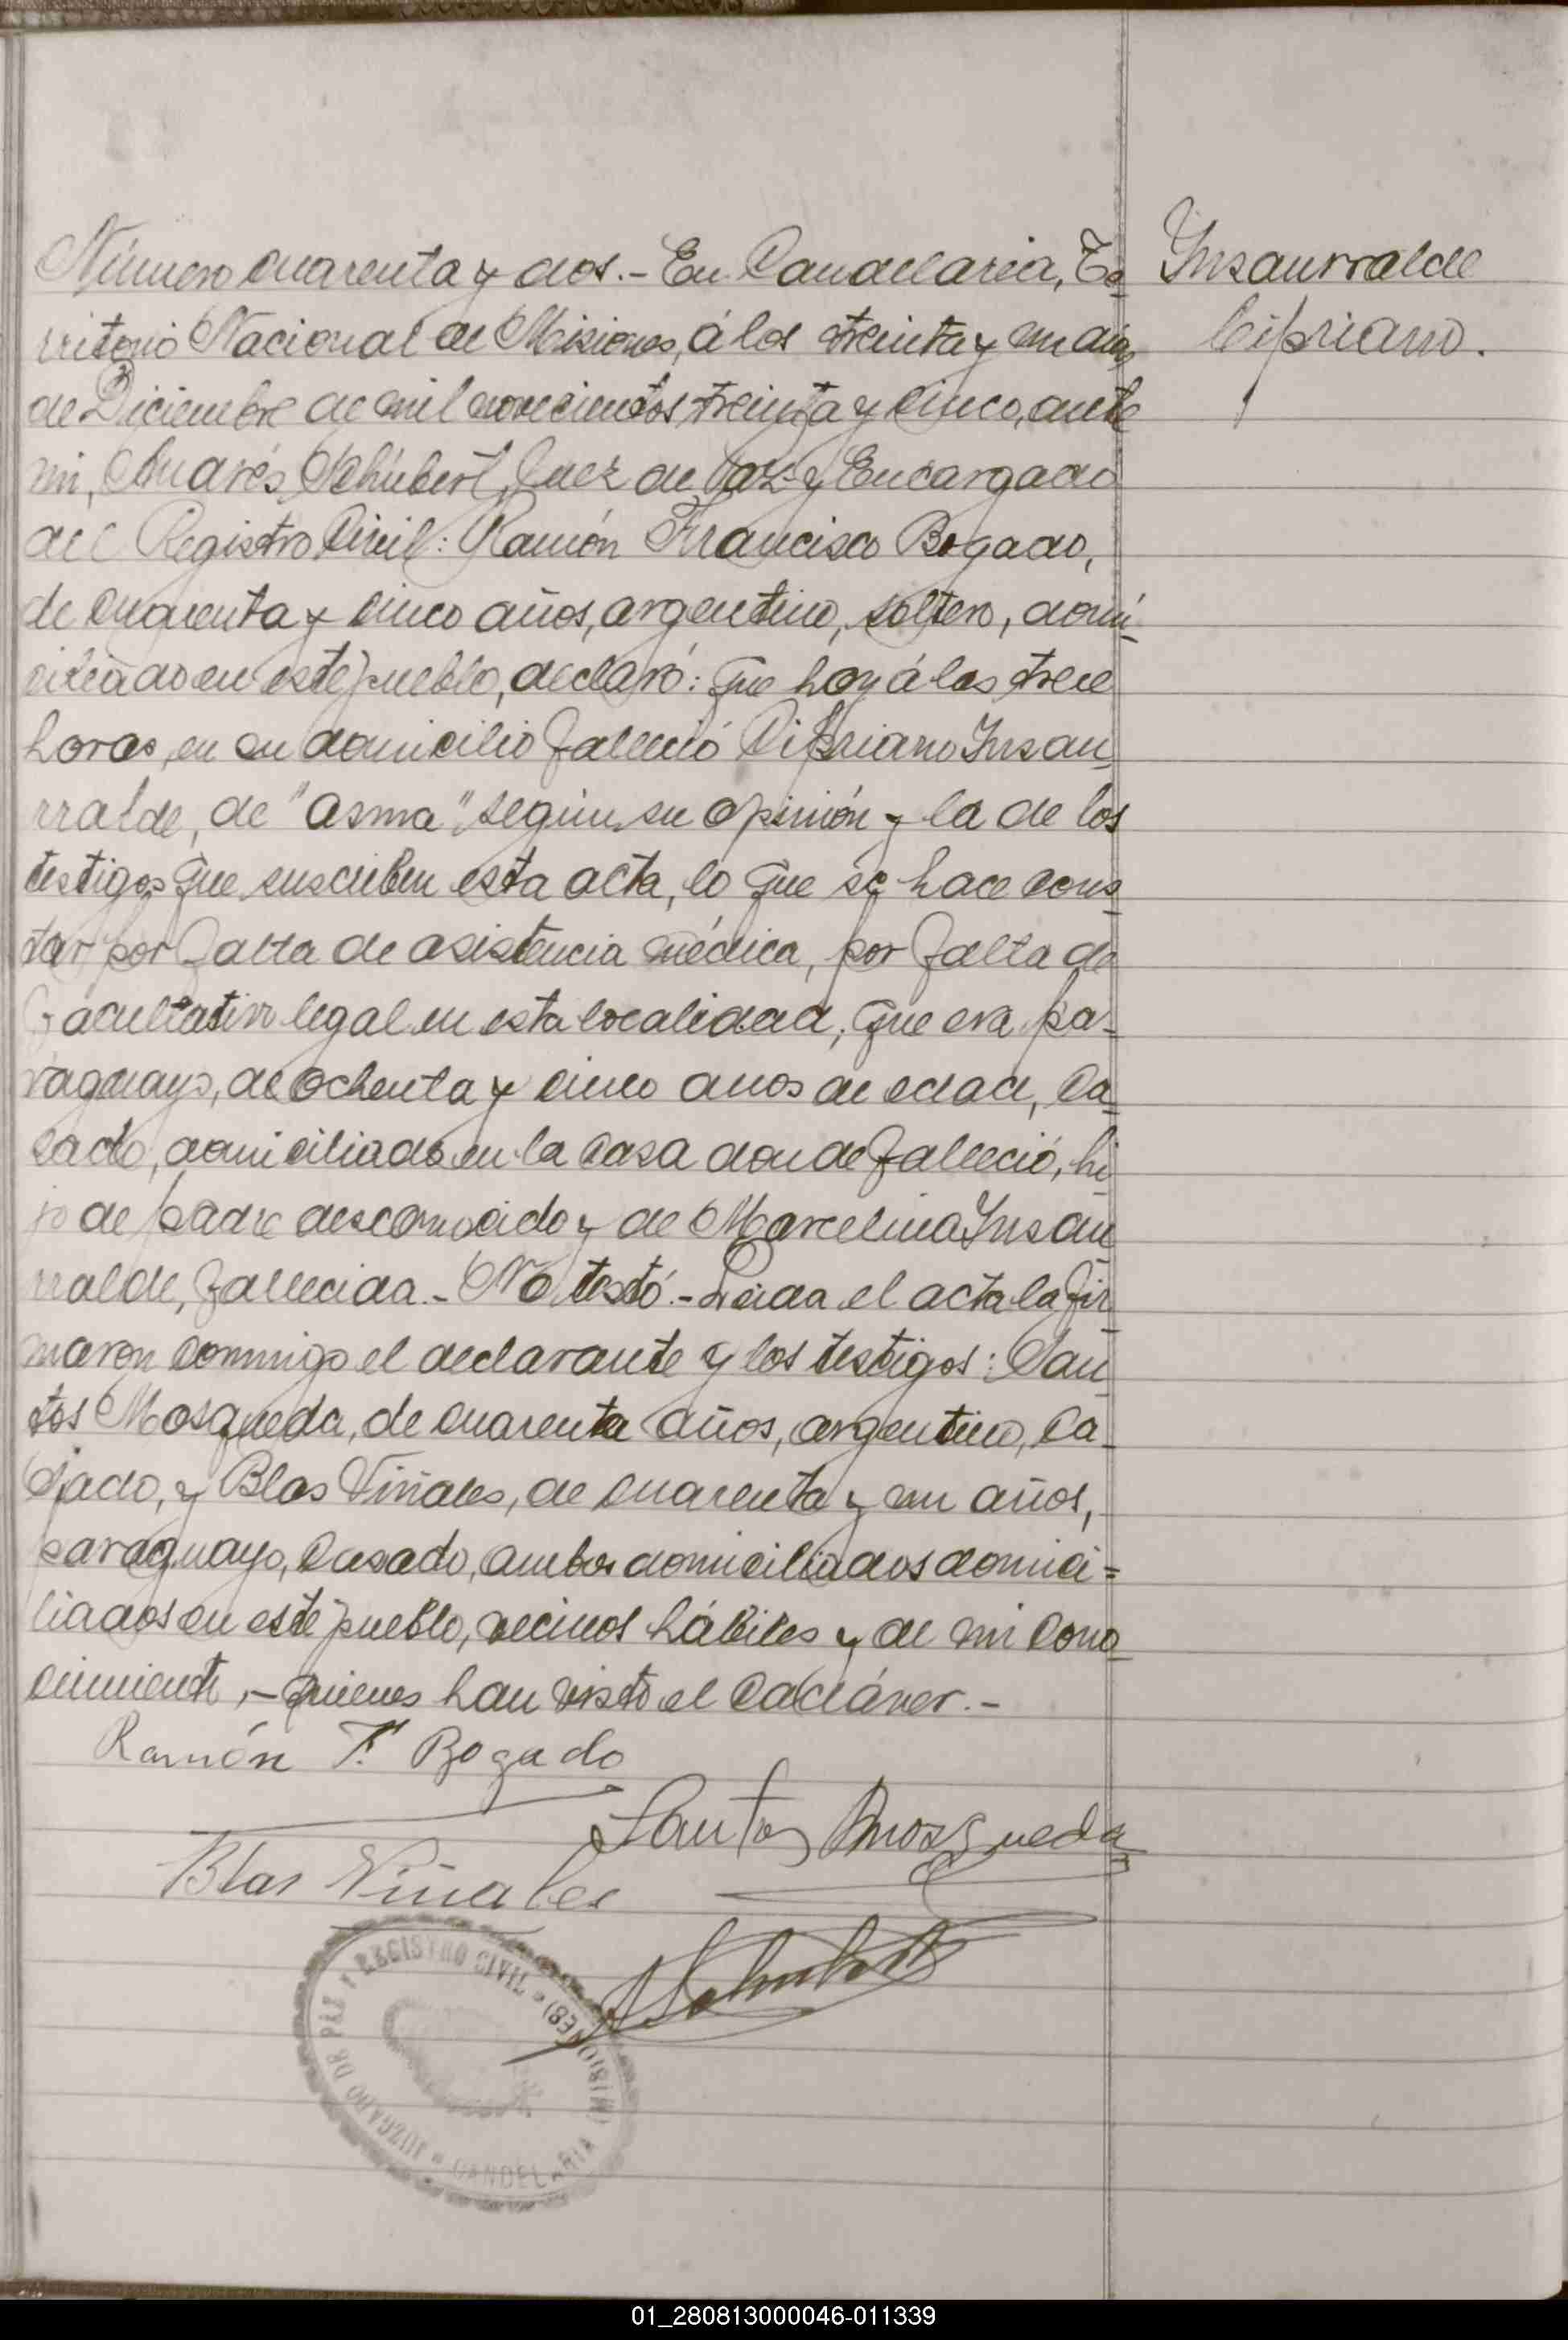 Número cuarenta y dos.- En Candelaria, Te-
rritorio Nacional de Misiones, á los treinta y un días
de Diciembre de mil novecientos treinta y cinco, ante
mi, Andrés Schúbert, Juez de Paz y Encargado
del Registro Civil: Ramón Francisco Bogado,
de cuarenta y cinco años, argentino, soltero, domi-
ciliado en este pueblo, declaró: que hoy á las trece
horas, en su domicilio falleció Cipriano Insau-
rralde, de "asma", según su opinión y la de los
testigos que suscriben esta acta, lo que se hace cons-
tar por falta de asistencia médica, por falta de
facultativo legal en esta localidad; que era pa-
raguayo, de ochenta y cinco años de edad, ca-
sado, domiciliado en la casa donde falleció, hi-
jo de padre desconocido y de Marcelina Insau-
rralde, fallecida.- No testó.- Leída el acta la fir-
maron conmigo el declarante y los testigos: San-
tos Mosqueda, de cuarenta años, argentino, ca-
sado, y Blas Viñales, de cuarenta y un años,
paraguayo, casado, ambos domiciliados domici=
liados en este pueblo, vecinos hábiles y de mi cono-
cimiento,- quienes han visto el cadáver.-
Insaurralde
Cipriano.
Ramón F. Bogado
Santos Mosqueda
Blas Viñales
ASchubert
JUZGADO DE PAZ Y REGISTRO CIVIL
CANDELARIA (MISIONES)
01_280813000046-011339